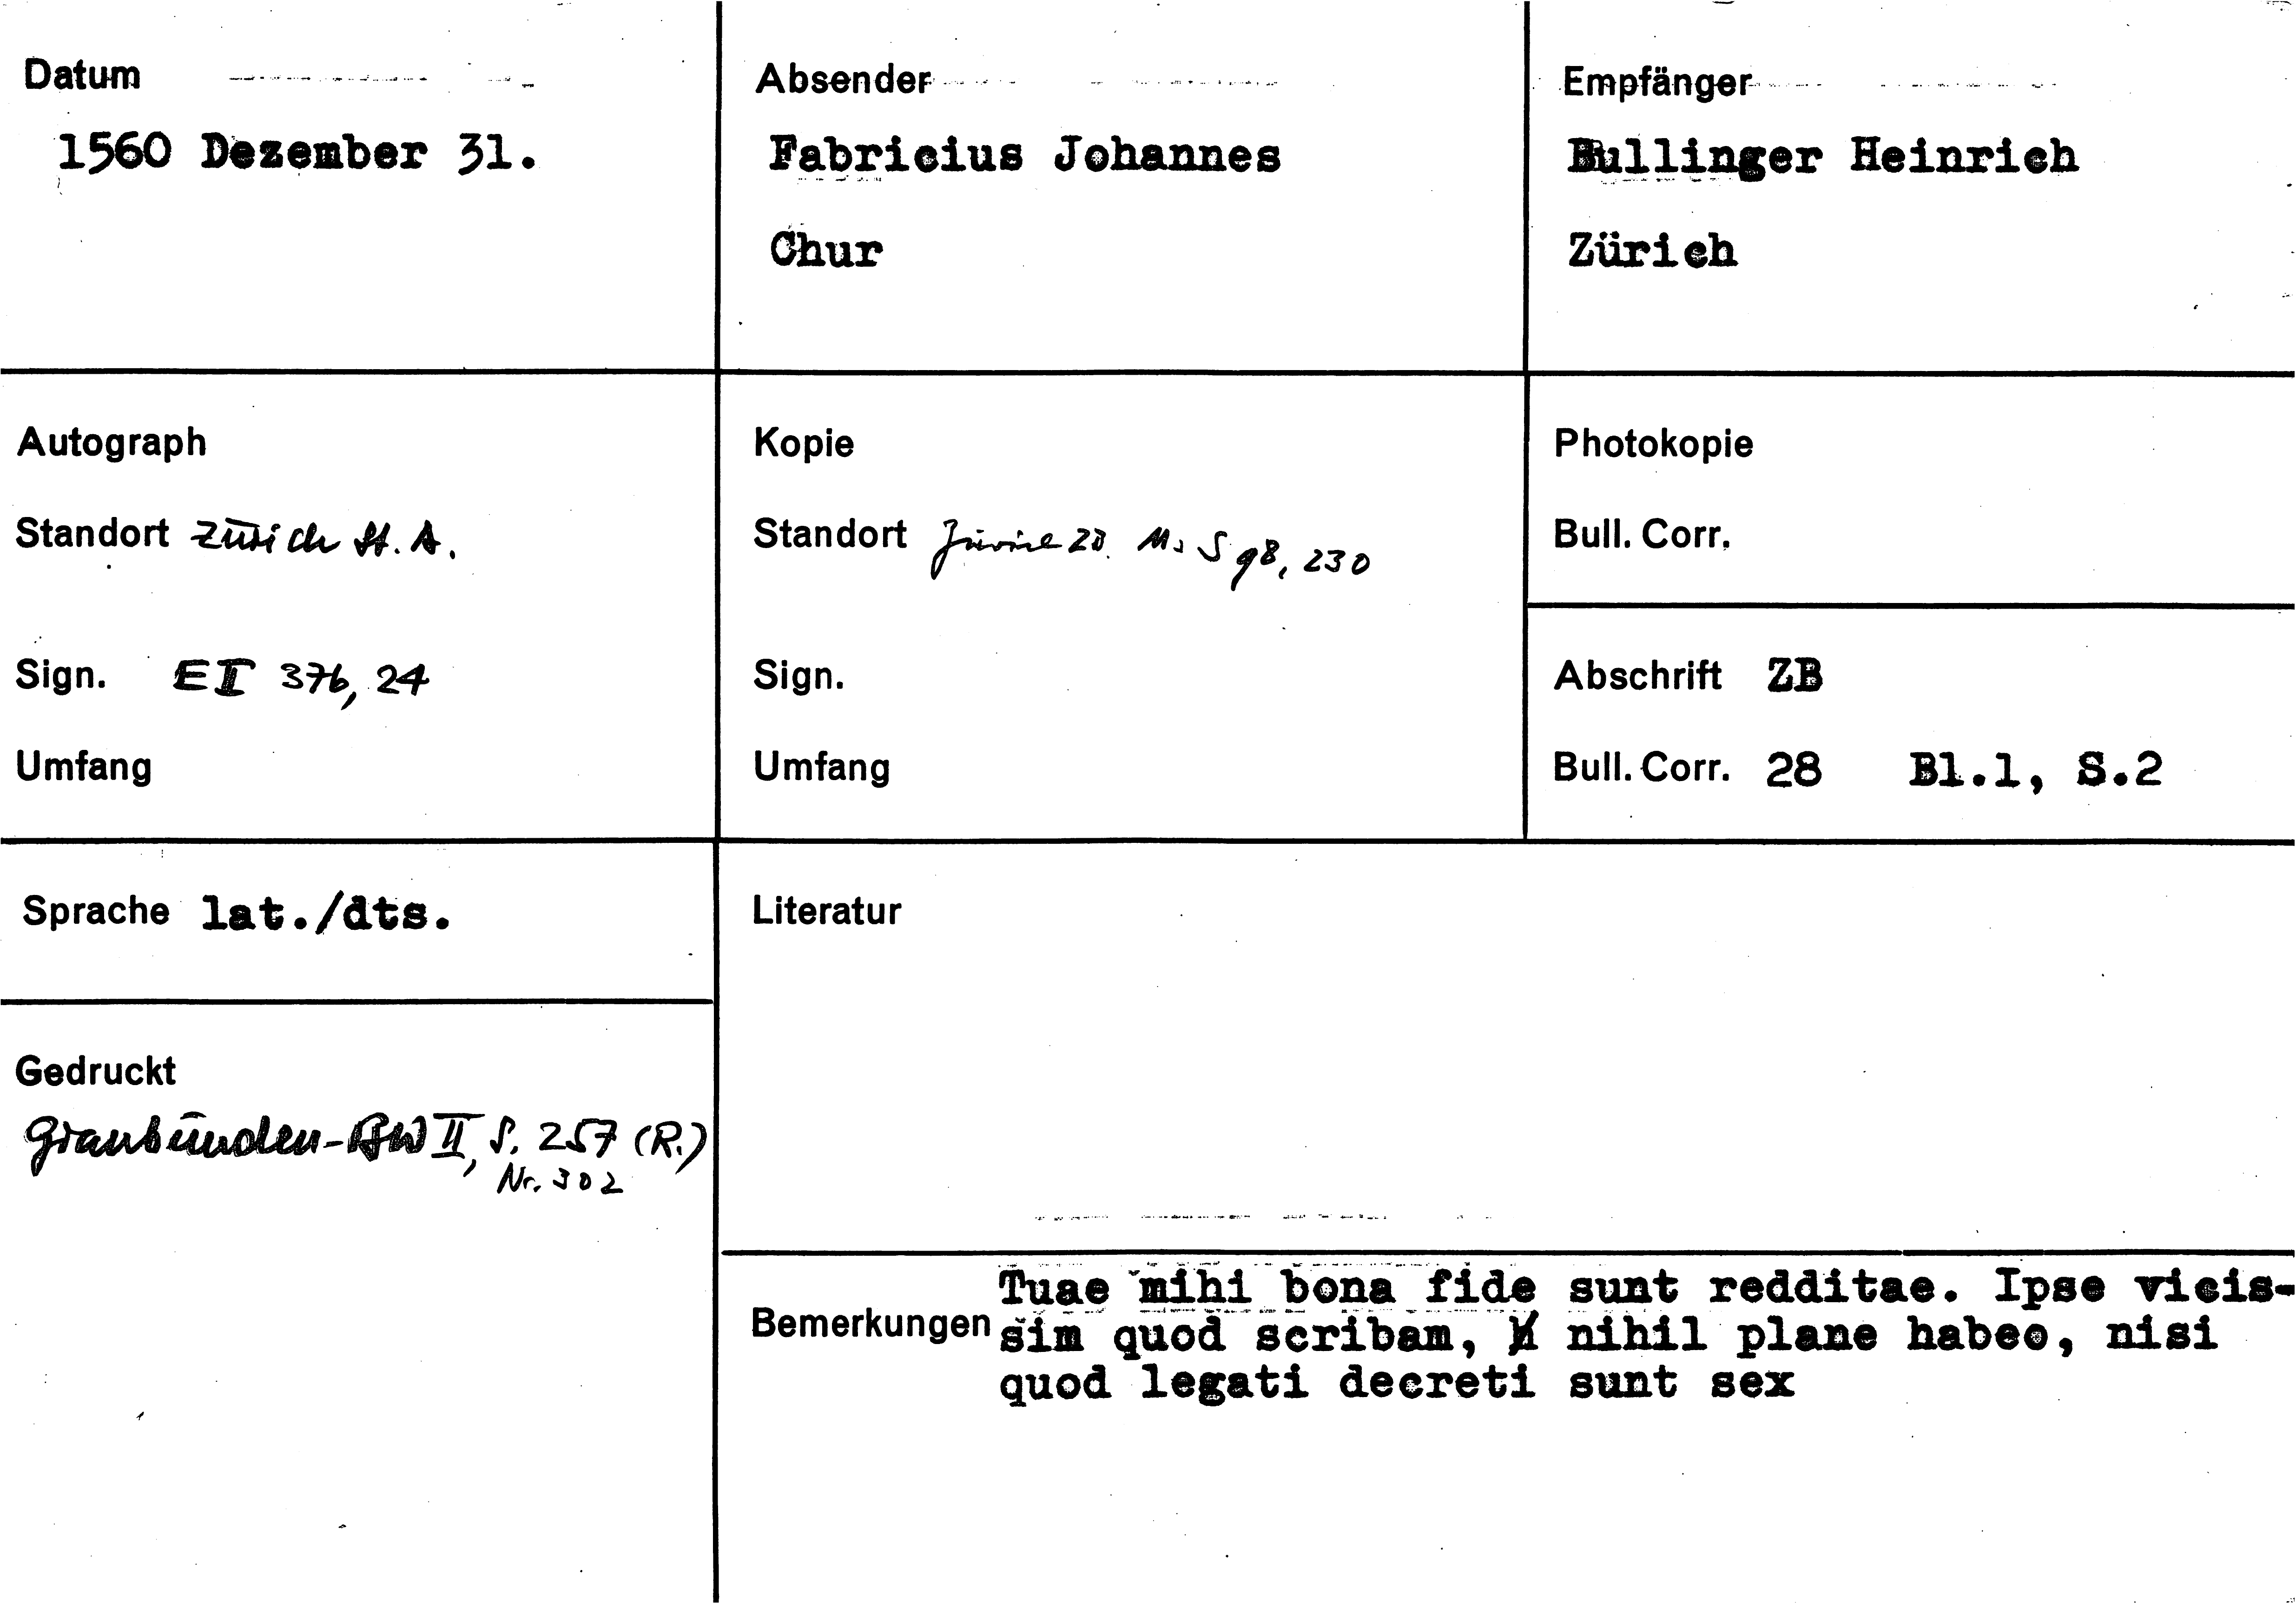 Datum
1560 Dezember 31.
Absender
Fabricius Johannes
Chur
Empfänger
Bullinger Heinrich
Zürich
Autograph
Standort Zürich St. A.
Sign. E II 376, 24
Umfang
Kopie
Standort Zürich ZB. Ms S 98, 230
Sign.
Umfang
Photokopie
Bull. Corr.
Abschrift ZB
Bull. Corr. 28 Bl.1, S.2
Sprache lat./dts.
Literatur
Gedruckt
Graubünden-BW II, S. 257 (R.)
Nr. 302
Bemerkungen
Tuae mihi bona fide sunt redditae. Ipse vicis-
sim quod scribam, nihil plane habeo, nisi
quod legati decreti sunt sex